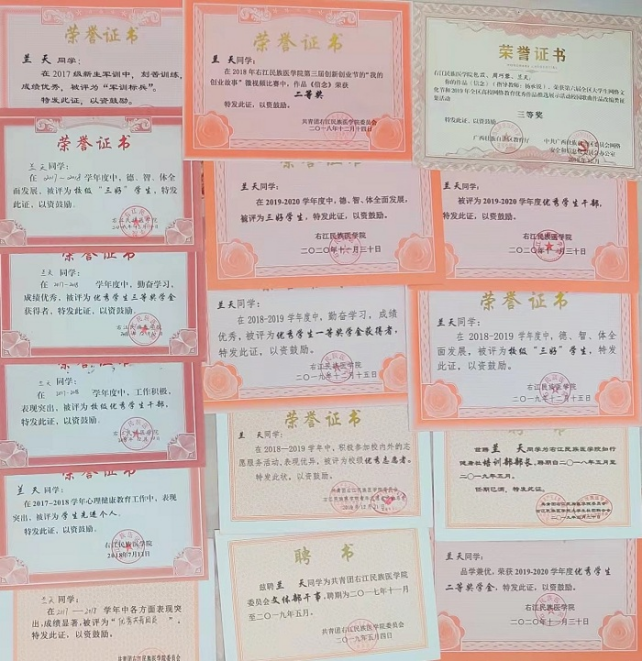 荣誉证书
兰天同学:
在2017级新生军训中,刻苦训练,
成绩优秀,被评为“军训标兵”。
特发此证,以资鼓励。
荣誉证书
兰天同学:
在2017-2018学年度中,德、智、体全
面发展,被评为校级“三好”学生,特发
此证,以资鼓励。
右江民族医学院
荣誉证书
兰天同学:
在2017-2018学年度中,勤奋学习,
成绩优秀,被评为优秀学生三等奖学金
获得者,特发此证,以资鼓励。
右江民族医学院
兰天同学:
在2017-2018学年度中,工作积极,
表现突出,被评为校级优秀学生干部,
特发此证,以资鼓励。
右江民族医学院
荣誉证书
兰天同学:
在2017-2018学年心理健康教育工作中,表现
突出,被评为学生先进个人。
特发此证,以资鼓励。
右江民族医学院
2018年7月12日
兰天同学:
在2017—2018学年中各方面表现突
出,成绩显著,被评为“优秀共青团员”。
特发此证,以资鼓励。
共青团右江民族医学院委员会
荣誉证书
兰天同学:
在2018年右江民族医学院第三届创新创业节的“我的
创业故事”微视频比赛中,作品《信念》荣获
二等奖
特发此证,以资鼓励。
共青团右江民族医学院委员会
二〇一八年十二月十四日
荣誉证书
兰天同学:
在2019-2020学年度中,德、智、体全面发展,
被评为三好学生,特发此证,以资鼓励。
右江民族医学院
二〇二〇年十一月三十日
兰天同学:
在2018-2019学年度中,勤奋学习,成绩
优秀,被评为优秀学生一等奖学金获得者,
特发此证,以资鼓励。
右江民族医学院
二〇一九年十二月十五日
荣誉证书
兰天同学:
在2018—2019学年中,积极参加校内外的志
愿服务活动,表现优异,被评为校级优秀志愿者。
特发此证,以资鼓励。
共青团右江民族医学院委员会
聘书
兹聘兰天同学为共青团右江民族医学院
委员会文体部干事,聘期为二〇一七年十一月
至二〇一九年五月。
共青团右江民族医学院委员会
二〇一九年五月四日
荣誉证书
三等奖
特发此证,以资鼓励。
兰天同学:
被评为2019-2020学年度优秀学生干部,
特发此证,以资鼓励。
右江民族医学院
二〇二〇年十一月三十日
荣誉证书
兰天同学:
在2018-2019学年度中,德、智、体全
面发展,被评为校级“三好”学生,特发
此证,以资鼓励。
右江民族医学院
二〇一九年十二月十五日
兹聘兰天同学为右江民族医学院知行
健康社培训部部长,聘期自二〇一八年五月至
二〇一九年五月。
任期已满,特发此证。
兰天同学:
品学兼优,荣获2019-2020学年度优秀学生
二等奖学金,特发此证,以资鼓励。
右江民族医学院
二〇二〇年十一月三十日